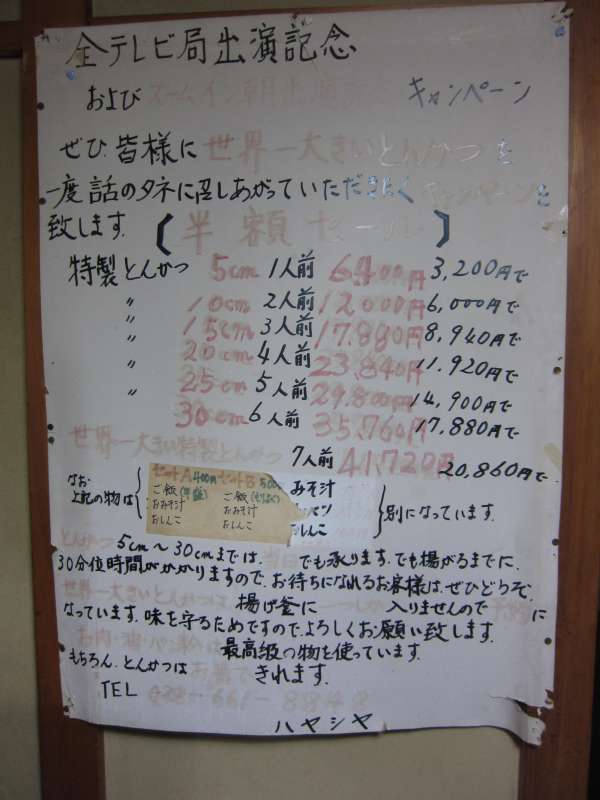 全テレビ局出演記念
および ズームイン朝出演 キャンペーン
ぜひ皆様に世界一大きいとんかつを
一度話のタネに召しあがっていただきたくキャンペーンを
致します。【半額セール】
特製とんかつ 5cm 1人前 6,400円 3,200円で
〃 10cm 2人前 12,000円 6,000円で
〃 15cm 3人前 17,880円 8,940円で
〃 20cm 4人前 23,840円 11,920円で
〃 25cm 5人前 29,800円 14,900円で
30cm 6人前 35,760円 17,880円で
世界一大きい特製とんかつ 7人前 41,720円 20,860円で
なお上記の物は
セットA400円 セットB 500
ご飯 ご飯
おみそ汁 おみそ汁
おしんこ おしんこ
みそ汁
おしんこ
別になっています。
とんかつ 5cm〜30cmまでは、当日でも承ります。でも揚がるまでに、
30分位時間がかかりますので、お待ちになれるお客様は、ぜひどうぞ。
世界一大きいとんかつは、揚げ釜に一つしか入りませんので予約に
なっています。味を守るためですので、よろしくお願い致します。
お肉・油・パン粉は最高級の物を使っています。
もちろん、とんかつはお箸できれます。
TEL 028-661-8848
ハヤシヤ